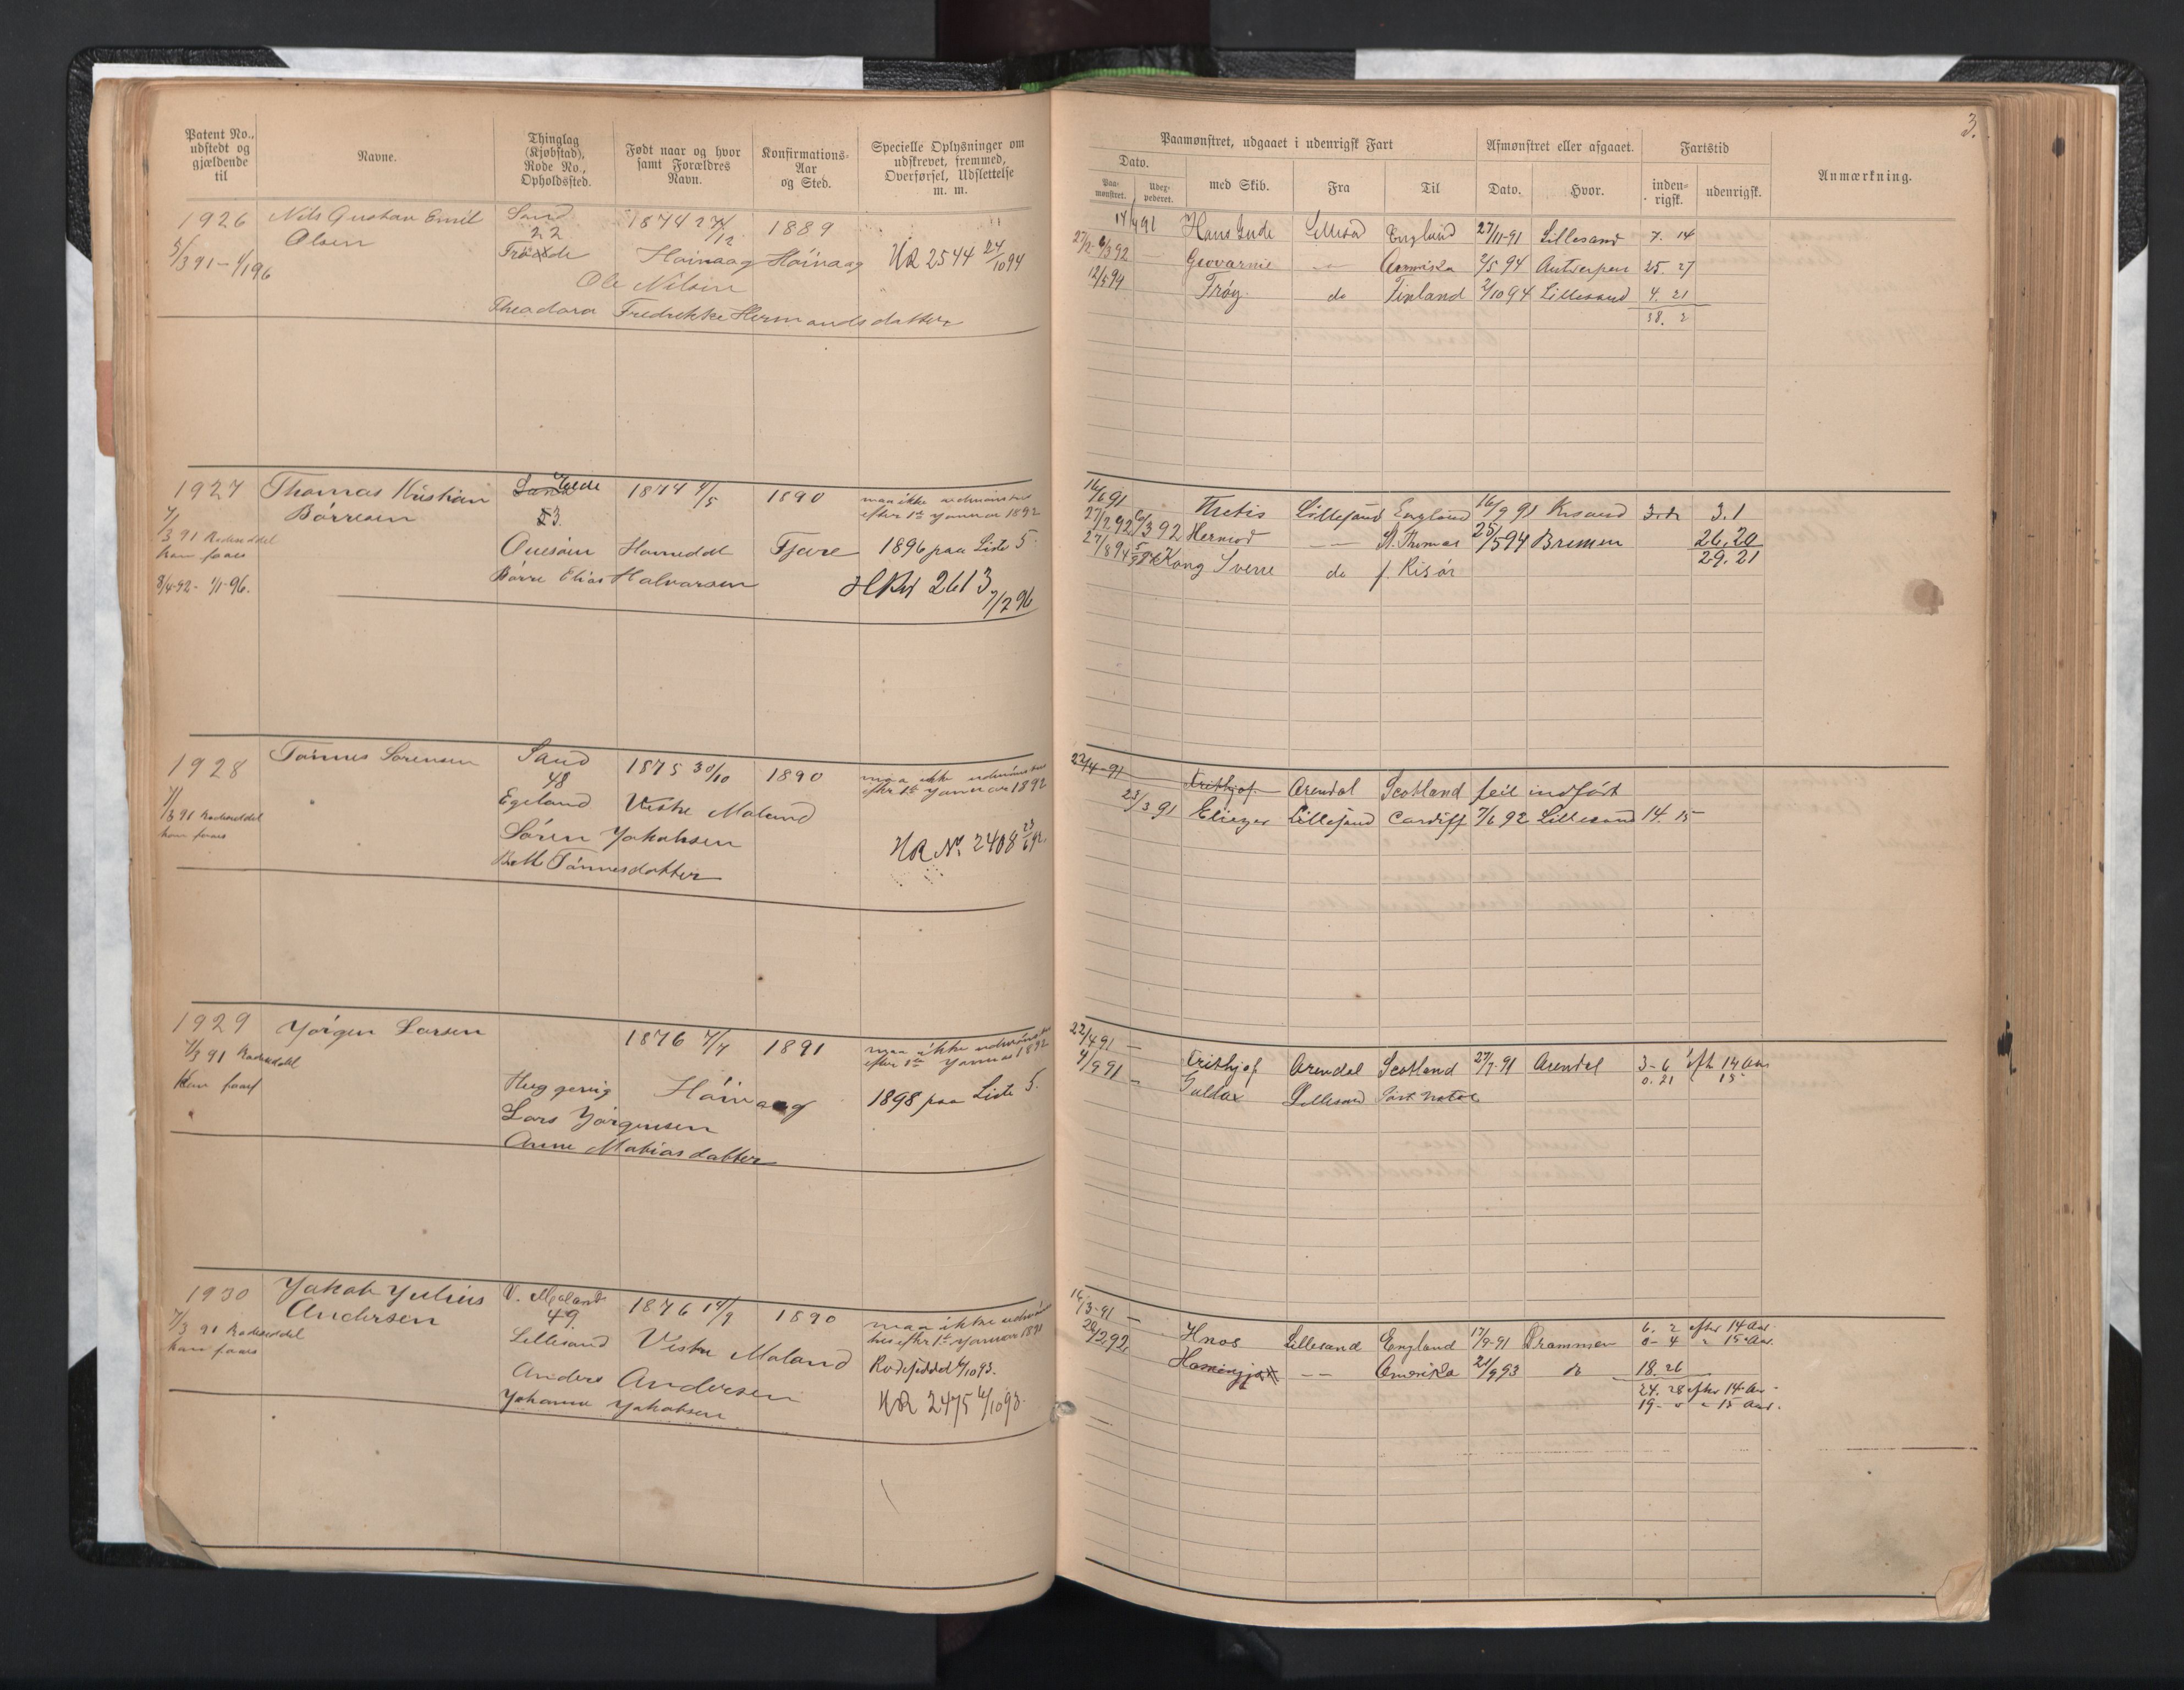 3.
Patent No., udstedt og gjældende til
Navne.
Thinglag (Kjøbstad), Rode No., Opholdssted.
Født naar og hvor samt Forældres Navn.
Konfirmations-Aar og Sted.
Specielle Oplysninger om udskrevet, fremmed, Overførsel, Udslettelse m. m.
Paamønstret, udgaaet i udenrigsk Fart
Afmønstret eller afgaaet.
Fartstid
Anmærkning.
Dato.
Paa-mønstret.
Udex-pederet.
med Skib.
Fra
Til
Dato.
Hvor.
inden-rigsk.
udenrigsk.
1926 Nils Gustav Emil Sand 1874 1889
Olsen 22
Høivaag Høivaag HR 2544 24/10 94
Ole Nilsen
Theodora Fredrikke Hermandsdatter
14/4 91 Hans Gude England 27/11-91 Lillesand 7. 14
2/5 94 Antwerpen 25. 27
12/5 94 Frøy do Finland 2/10 94 Lillesand 4. 21
38. 2
1927 Thomas Kristian 1874 4/5 1890 maa ikke udmønstres
Børresen efter 1ste Januar 1892
3/91 Rodeseddel
kan faaes
Fjære 1896 paa Liste 5
Børre Elias Halvorsen
8/4-92- 1/1-96. 2613 7/2 96
16/6 91 Thetis Lillesand England 16/9 91 Krsand 3.1
27/2 92 6/3 92 Hermod St. Thomas 25/5 94 Bremen 26.20
27/8 94 Kong Sverre do f. Risør 29.21
1928 Tønnes Sørensen Sand 1875 30/10 1890 maa ikke udmønstres
48 efter 1ste Januar 1892
7/3 91 Rodeseddel Egeland Vestre Moland
kan faaes
Søren Jakobsen HR No. 2408 23/6 92.
Tønnesdatter
22/4-91 Frithjof Arendal Scotland feil indført
23/3 91 Eliezer Lillesand Cardiff 7/6 92 Lillesand 14. 15
1929 Jørgen Larsen 1876 7/7 1891 maa ikke udmønstres
7/3 91 Rodeseddel efter 1ste Januar 1892
kan faaes Høivaag 1898 paa Liste 5.
Lars Jørgensen
Anne Matiasdatter
22/4 91 Frithjof Arendal Scotland 27/7-91 Arendal 3-6 eft 14 Aar
0. 21 " 15
4/9 91 Lillesand Port Natal
1930 Jakob Julius V. Moland 1876 14/9 1890 maa ikke udmøns
Andersen 49. tres efter 1ste Januar
7/3 91 Rodeseddel Lillesand Vestre Moland
kan faaes Rodeseddel 6/10 93.
Anders Andersen
Johanne Jakobsen HR 2475 6/10 93.
16/3-91 Hnos Lillesand England 17/9-91 Drammen 6. 2 efter 14 Aar
0- 4 " 15 Aar.
26/2 92 Amerika 21/9 93 do 18. 26
24. 28 efter 14 Aar
19- 0 " 15 Aar.